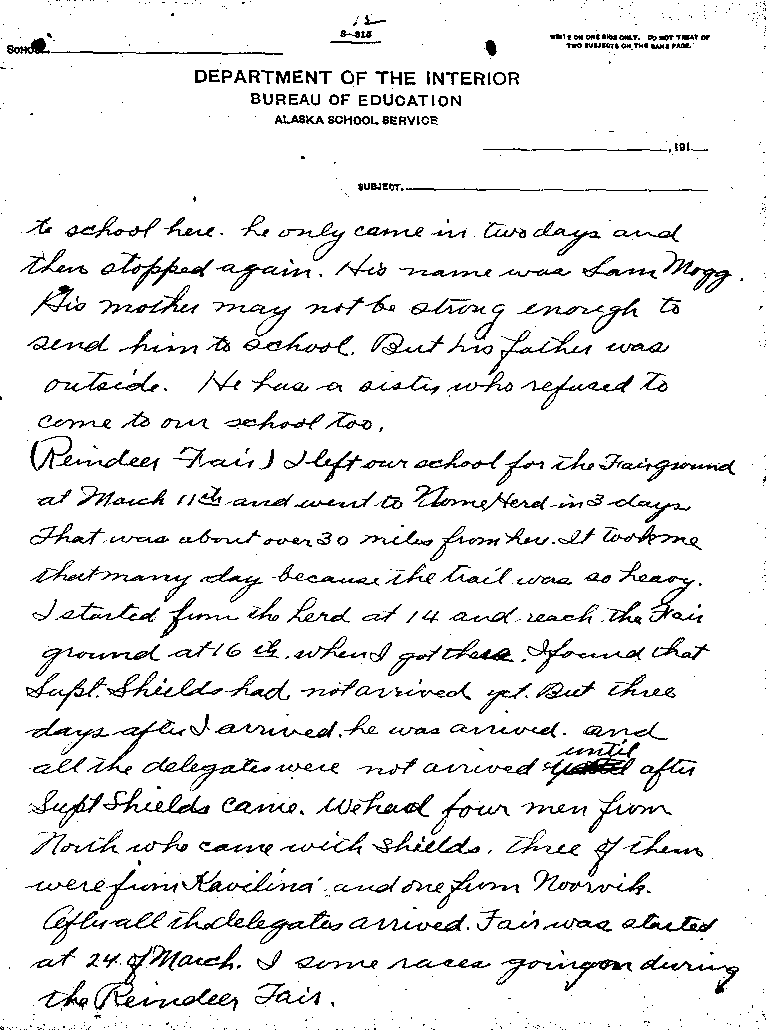 12
8-315
SCHOOL
WRITE ON ONE SIDE ONLY. DO NOT TREAT OF
TWO SUBJECTS ON THE SAME PAGE.
DEPARTMENT OF THE INTERIOR
BUREAU OF EDUCATION
ALASKA SCHOOL SERVICE
, 191
SUBJECT.
to school here. he only came in two days and
then stopped again. His name was Sam Mogg.
His mother may not be strong enough to
send him to school. But his father was
outside. He has a sister who refused to
come to our school too.
(Reindeer Fair) I left our school for the Fair ground
at March 11th and went to Nome Herd in 3 days
That was about over 30 miles from here. It took me
that many day because the trail was so heavy.
I started from the herd at 14 and reach the Fair
ground at 16 th. when I got there. I found that
Supt. Shields had not arrived yet. But three
days after I arrived. he was arrived. and
all the delegates were not arrived until after
Supt Shields came. We had four men from
North who came with Shields. three of them
were from Kavilina and one from Noorvik.
After all the delegates arrived. Fair was started
at 24 of March. I some races going on during
the Reindeer Fair.